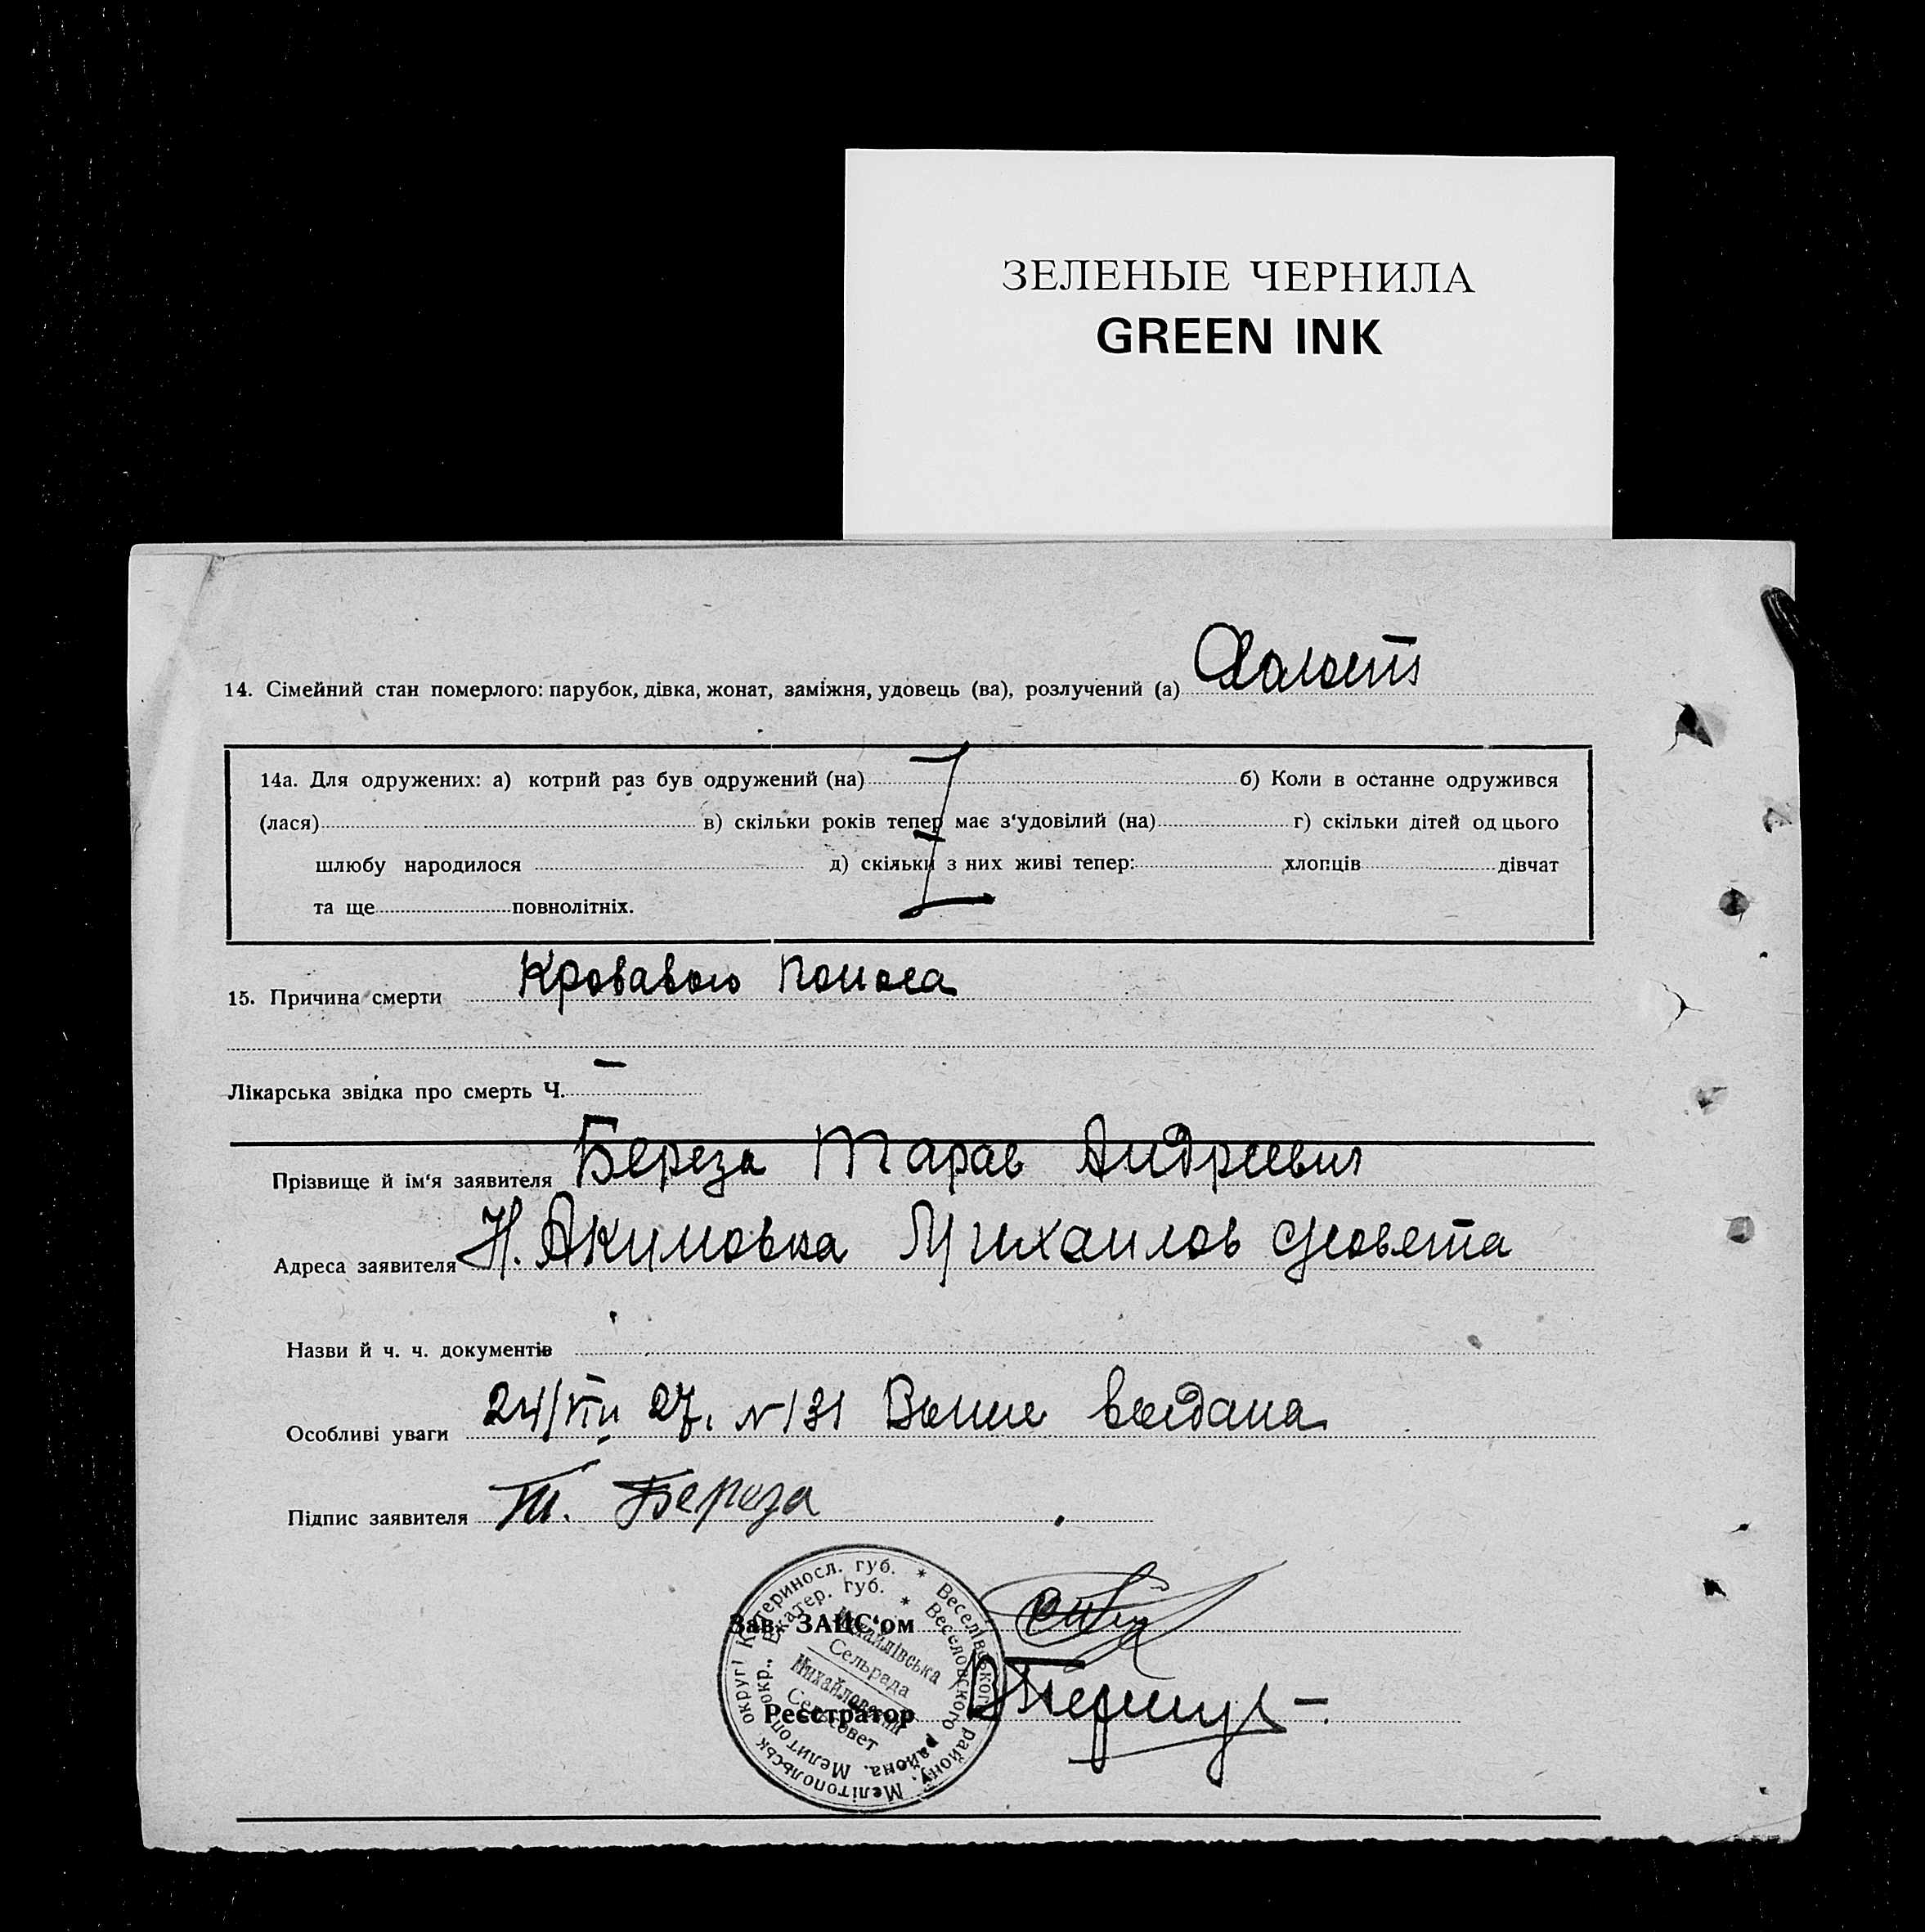 ЗЕЛЕНЫЕ ЧЕРНИЛА
GREEN INK
14. Сімейний стан померлого: парубок, дівка, жонат, заміжня, удовець (ва), розлучений (а) Холост
14а. Для одружених: а) котрий раз був одружений (на) б) Коли в останне одружився
(лася) в) скільки років тепер має з'удовілий (на) г) скільки дітей од цього
шлюбу народилося д) скільки з них живі тепер: хлопців дівчат
та ще повнолітніх.
15. Причина смерти Кровавого поноса
Лікарська звідка про смерть Ч. —
Прізвище й ім'я заявителя Береза Тарас Андреевич
Адреса заявителя Н. Акимовка Михайлов с/совета
Назви й ч. ч. документів
Особливі уваги 24/VIII 27. N 131 выдана
Підпис заявителя Т. Береза
Зав. ЗАЦС'ом
Реєстратор
Мелітопольськ. округі Катериносл. губ. * Веселівського району,
Мелитоп. окр., Екатер. губ. * Веселовского района,
Михайлівська
Сельрада
Михайловский
Сельсовет